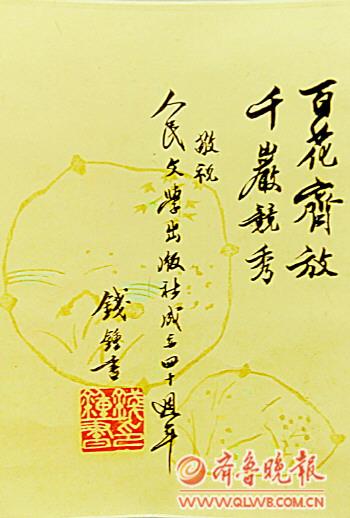 百花齊放
千巖競秀
敬祝
人民文學出版社成立四十週年
錢鍾書
錢鍾書印
齐鲁晚报
WWW.QLWB.COM.CN